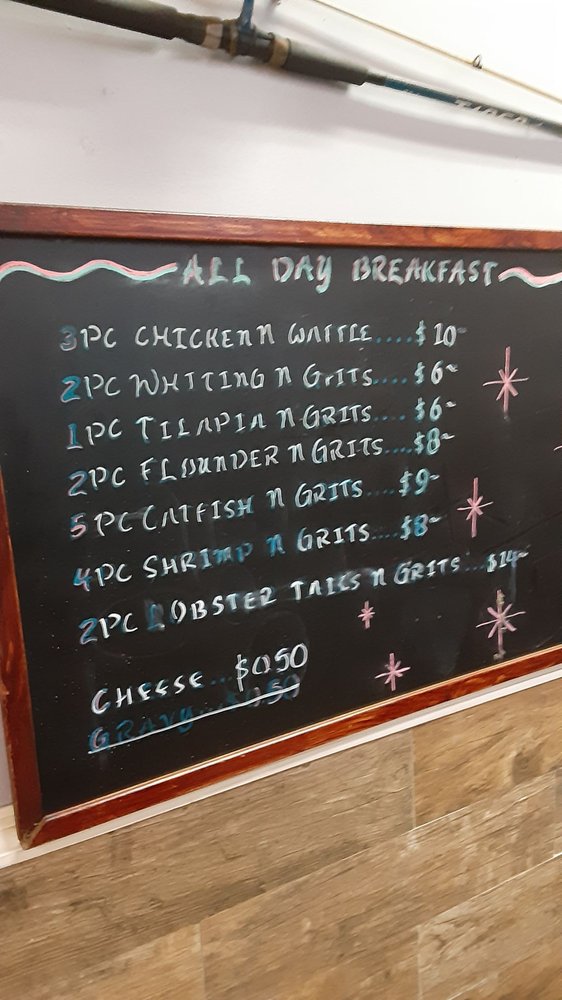 ALL DAY BREAKFAST
3PC CHICKEN N WAFFLE....$10~
2PC WHITING N GRITS....$6~
1PC TILAPIA N GRITS....$6~
2PC FLOUNDER N GRITS....$8~
5PC CATFISH N GRITS....$9~
4PC SHRIMP N GRITS....$8~
2PC LOBSTER TAILS N GRITS...$14~
CHEESE...$0.50
GRAVY...$1.50